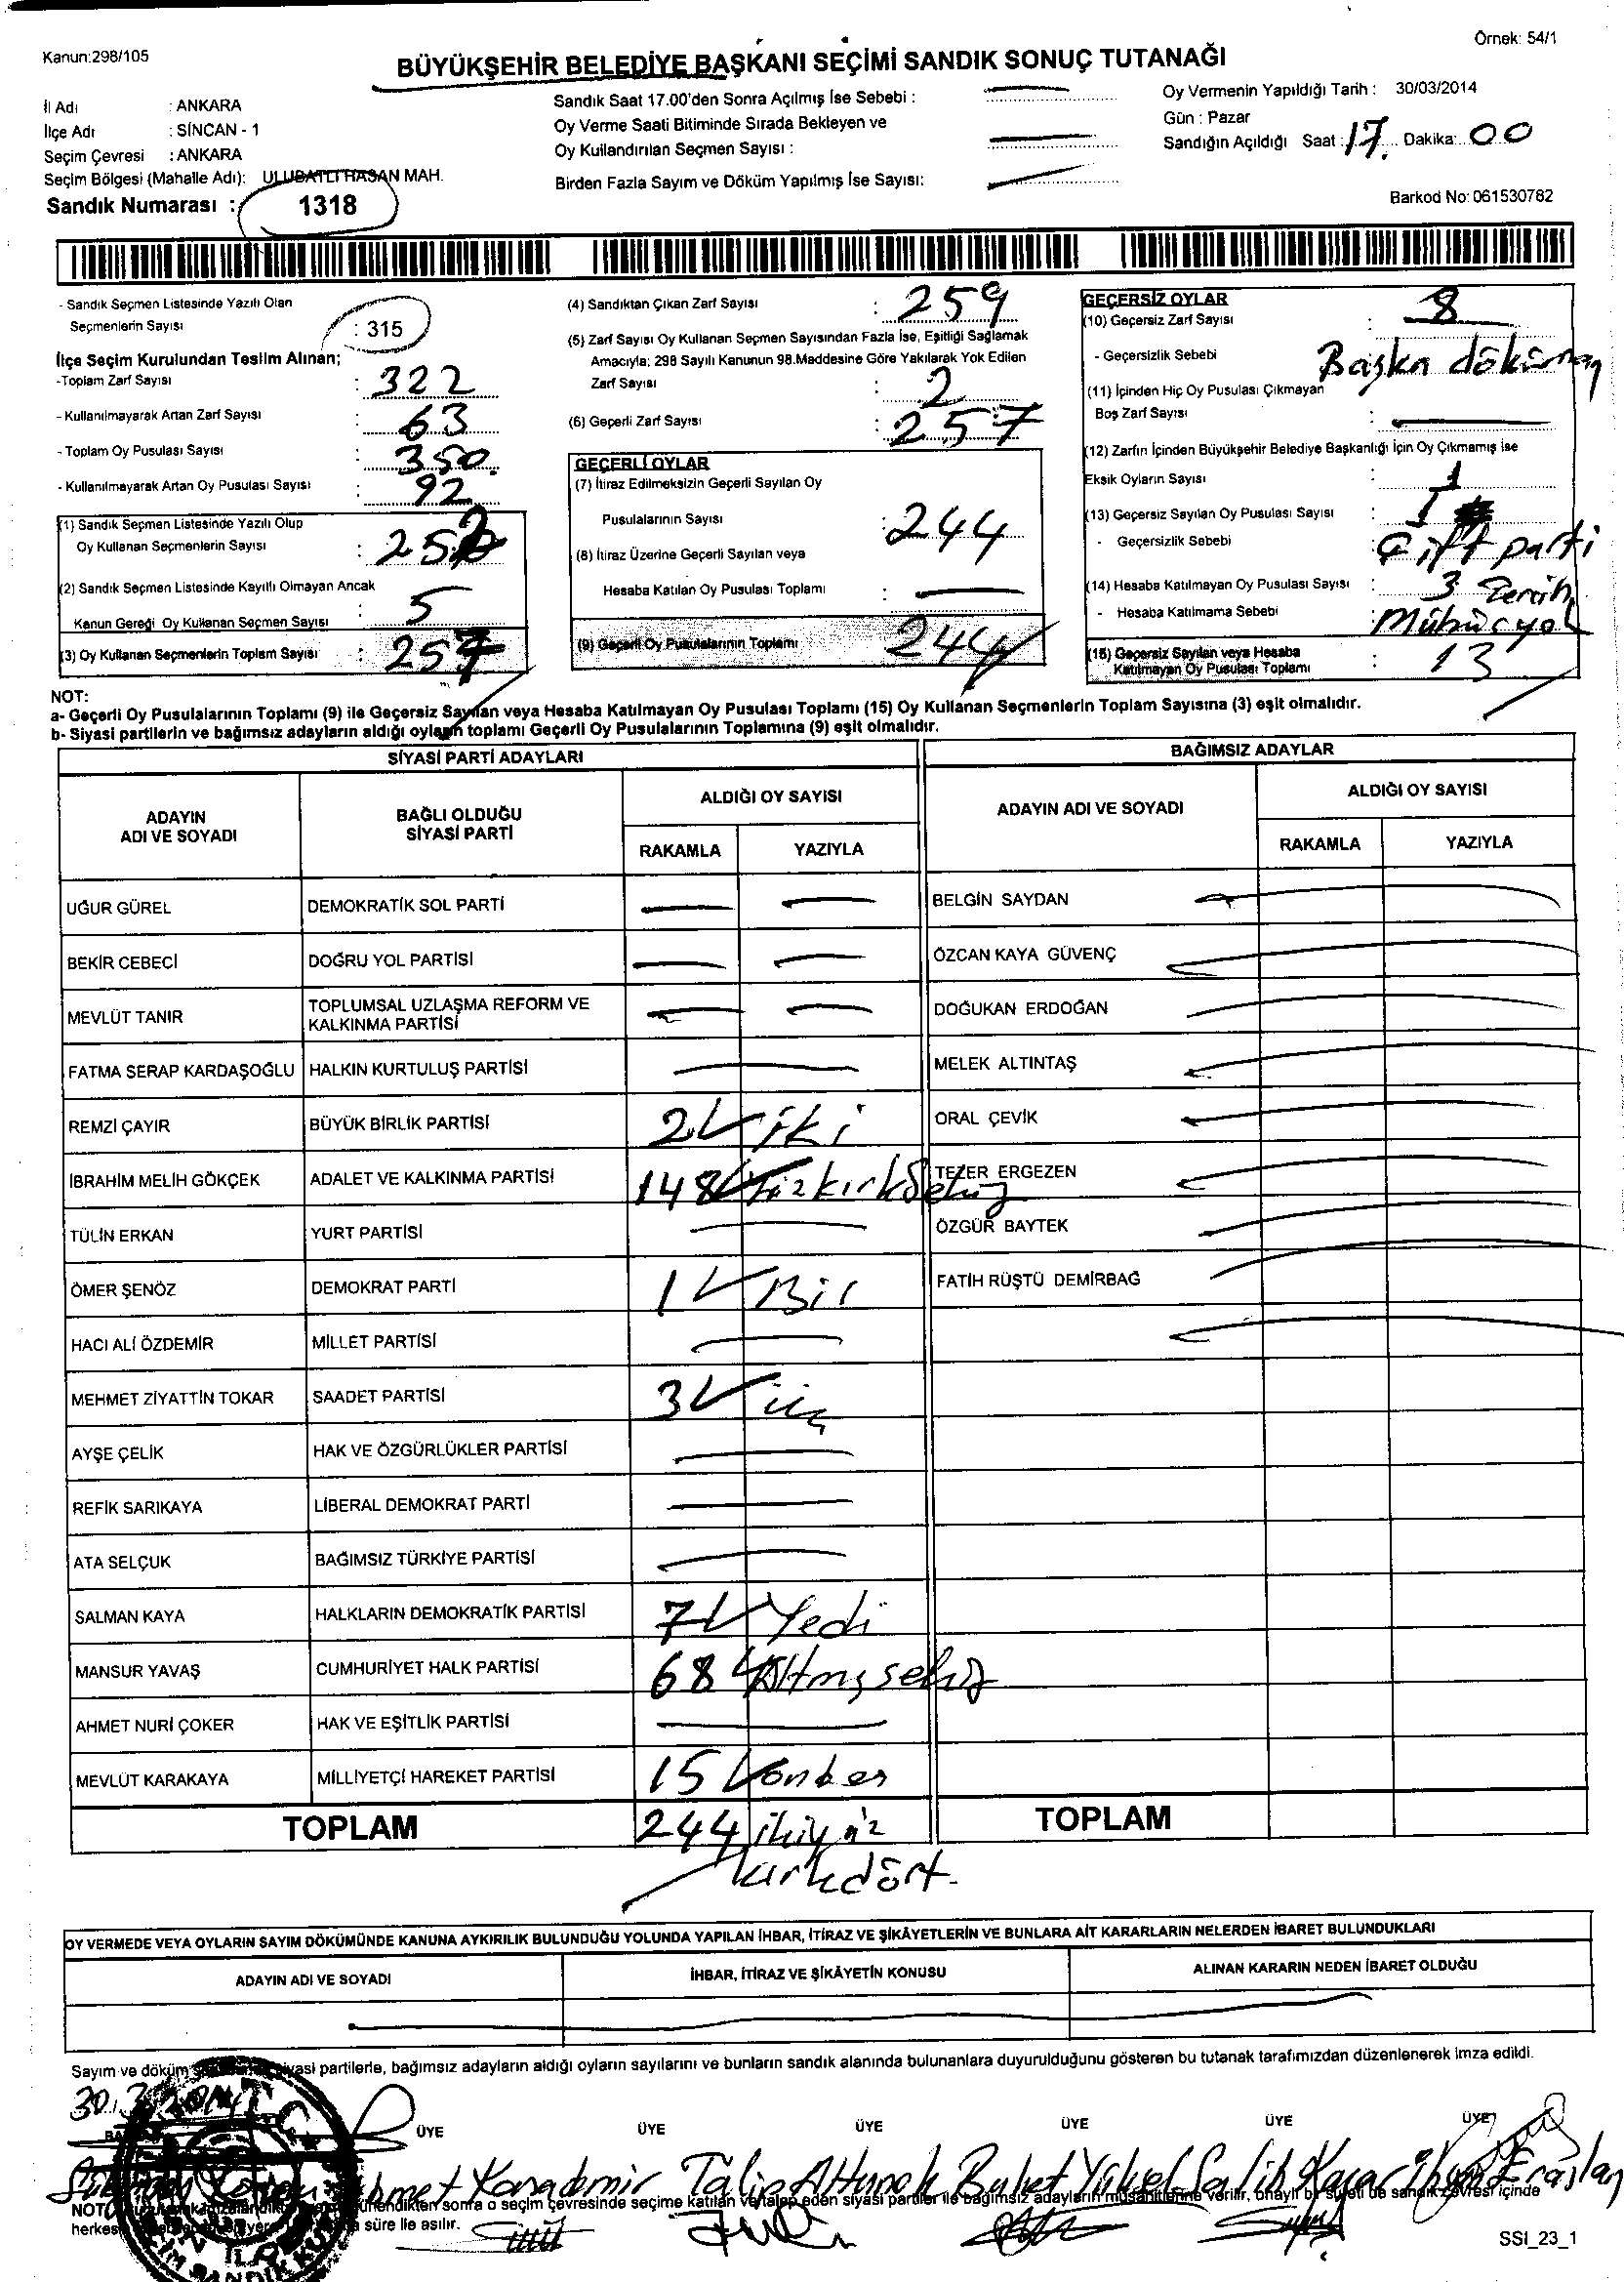 Kanun:298/105
Örnek: 54/1
BÜYÜKŞEHİR BELEDİYE BAŞKANI SEÇİMİ SANDIK SONUÇ TUTANAĞI
İl Adı : ANKARA
İlçe Adı : SİNCAN - 1
Seçim Çevresi : ANKARA
Seçim Bölgesi (Mahalle Adı): ULUBATLI HASAN MAH.
Sandık Numarası : 1318
Sandık Saat 17.00'den Sonra Açılmış İse Sebebi :
Oy Verme Saati Bitiminde Sırada Bekleyen ve
Oy Kullandırılan Seçmen Sayısı :
Birden Fazla Sayım ve Döküm Yapılmış İse Sayısı:
Oy Vermenin Yapıldığı Tarih : 30/03/2014
Gün : Pazar
Sandığın Açıldığı Saat : 17. Dakika: 00
Barkod No: 061530782
- Sandık Seçmen Listesinde Yazılı Olan
Seçmenlerin Sayısı : 315
İlçe Seçim Kurulundan Teslim Alınan;
-Toplam Zarf Sayısı : 322
- Kullanılmayarak Artan Zarf Sayısı : 63
- Toplam Oy Pusulası Sayısı : 350.
- Kullanılmayarak Artan Oy Pusulası Sayısı : 92
(1) Sandık Seçmen Listesinde Yazılı Olup
Oy Kullanan Seçmenlerin Sayısı : 252
(2) Sandık Seçmen Listesinde Kayıtlı Olmayan Ancak
Kanun Gereği Oy Kullanan Seçmen Sayısı : 5
(3) Oy Kullanan Seçmenlerin Toplam Sayısı : 257
(4) Sandıktan Çıkan Zarf Sayısı : 259
(5) Zarf Sayısı Oy Kullanan Seçmen Sayısından Fazla İse, Eşitliği Sağlamak
Amacıyla; 298 Sayılı Kanunun 98.Maddesine Göre Yakılarak Yok Edilen
Zarf Sayısı : 2
(6) Geçerli Zarf Sayısı : 257
GEÇERLİ OYLAR
(7) İtiraz Edilmeksizin Geçerli Sayılan Oy
Pusulalarının Sayısı : 244
(8) İtiraz Üzerine Geçerli Sayılan veya
Hesaba Katılan Oy Pusulası Toplamı :
(9) Geçerli Oy Pusulalarının Toplamı : 244
GEÇERSİZ OYLAR
(10) Geçersiz Zarf Sayısı : 8
- Geçersizlik Sebebi Başka döküman
(11) İçinden Hiç Oy Pusulası Çıkmayan
Boş Zarf Sayısı :
(12) Zarfın İçinden Büyükşehir Belediye Başkanlığı İçin Oy Çıkmamış İse
Eksik Oyların Sayısı : 1
(13) Geçersiz Sayılan Oy Pusulası Sayısı : 1
- Geçersizlik Sebebi : Çift parti
(14) Hesaba Katılmayan Oy Pusulası Sayısı : 3 Tercih
- Hesaba Katılmama Sebebi : Mühür yok
(15) Geçersiz Sayılan veya Hesaba
Katılmayan Oy Pusulası Toplamı : 13
NOT:
a- Geçerli Oy Pusulalarının Toplamı (9) ile Geçersiz Sayılan veya Hesaba Katılmayan Oy Pusulası Toplamı (15) Oy Kullanan Seçmenlerin Toplam Sayısına (3) eşit olmalıdır.
b- Siyasi partilerin ve bağımsız adayların aldığı oyların toplamı Geçerli Oy Pusulalarının Toplamına (9) eşit olmalıdır.
SİYASİ PARTİ ADAYLARI
ADAYIN
ADI VE SOYADI
BAĞLI OLDUĞU
SİYASİ PARTİ
ALDIĞI OY SAYISI
RAKAMLA YAZIYLA
UĞUR GÜREL DEMOKRATİK SOL PARTİ
BEKİR CEBECİ DOĞRU YOL PARTİSİ
MEVLÜT TANIR TOPLUMSAL UZLAŞMA REFORM VE
KALKINMA PARTİSİ
FATMA SERAP KARDAŞOĞLU HALKIN KURTULUŞ PARTİSİ
REMZİ ÇAYIR BÜYÜK BİRLİK PARTİSİ 2 iki
İBRAHİM MELİH GÖKÇEK ADALET VE KALKINMA PARTİSİ 148 Yüzkırksekiz
TÜLİN ERKAN YURT PARTİSİ
ÖMER ŞENÖZ DEMOKRAT PARTİ 1 Bir
HACI ALİ ÖZDEMİR MİLLET PARTİSİ
MEHMET ZİYATTİN TOKAR SAADET PARTİSİ 3 üç
AYŞE ÇELİK HAK VE ÖZGÜRLÜKLER PARTİSİ
REFİK SARIKAYA LİBERAL DEMOKRAT PARTİ
ATA SELÇUK BAĞIMSIZ TÜRKİYE PARTİSİ
SALMAN KAYA HALKLARIN DEMOKRATİK PARTİSİ 7 Yedi
MANSUR YAVAŞ CUMHURİYET HALK PARTİSİ 68 Altmışsekiz
AHMET NURİ ÇOKER HAK VE EŞİTLİK PARTİSİ
MEVLÜT KARAKAYA MİLLİYETÇİ HAREKET PARTİSİ 15 onbeş
TOPLAM 244 ikiyüz
kırkdört.
BAĞIMSIZ ADAYLAR
ADAYIN ADI VE SOYADI
ALDIĞI OY SAYISI
RAKAMLA YAZIYLA
BELGİN SAYDAN
ÖZCAN KAYA GÜVENÇ
DOĞUKAN ERDOĞAN
MELEK ALTINTAŞ
ORAL ÇEVİK
TEZER ERGEZEN
ÖZGÜR BAYTEK
FATİH RÜŞTÜ DEMİRBAĞ
TOPLAM
OY VERMEDE VEYA OYLARIN SAYIM DÖKÜMÜNDE KANUNA AYKIRILIK BULUNDUĞU YOLUNDA YAPILAN İHBAR, İTİRAZ VE ŞİKÂYETLERİN VE BUNLARA AİT KARARLARIN NELERDEN İBARET BULUNDUKLARI
ADAYIN ADI VE SOYADI İHBAR, İTİRAZ VE ŞİKÂYETİN KONUSU ALINAN KARARIN NEDEN İBARET OLDUĞU
Sayım ve döküm siyasi partilerle, bağımsız adayların aldığı oyların sayılarını ve bunların sandık alanında bulunanlara duyurulduğunu gösteren bu tutanak tarafımızdan düzenlenerek imza edildi.
30.3.2014
ÜYE ÜYE ÜYE ÜYE ÜYE ÜYE
Ahmet Karademir Talip Altunok Buket Yüksel Salih Kaçar İlyas Eraslan
NOT: sonra o seçim çevresinde seçime katılan ve talep eden siyasi partiler ile bağımsız adayların müşahitlerine verilir, onaylı bir sureti de sandık çevresi içinde
herkes süre ile asılır.
SSI_23_1